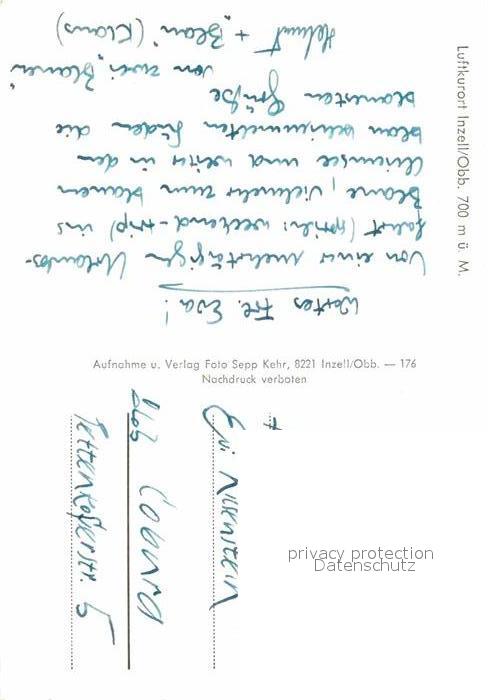 Luftkurort Inzell/Obb. 700 m ü. M.
Wertes Frl. Eva!
Von einer mehrtägigen Urlaubs-
fahrt (sprich: weekend-trip) ins
Blaue, vielmehr zum blauen
Chiemsee und weiter in den
blau beschimmelten Süden die
blauesten Grüße
von zwei „Blauen"
Helmut + „Blau" (Klaus)
Aufnahme u. Verlag Foto Sepp Kehr, 8221 Inzell/Obb. — 176
Nachdruck verboten
Evi
863 Coburg
Pettenkoferstr. 5
privacy protection
Datenschutz